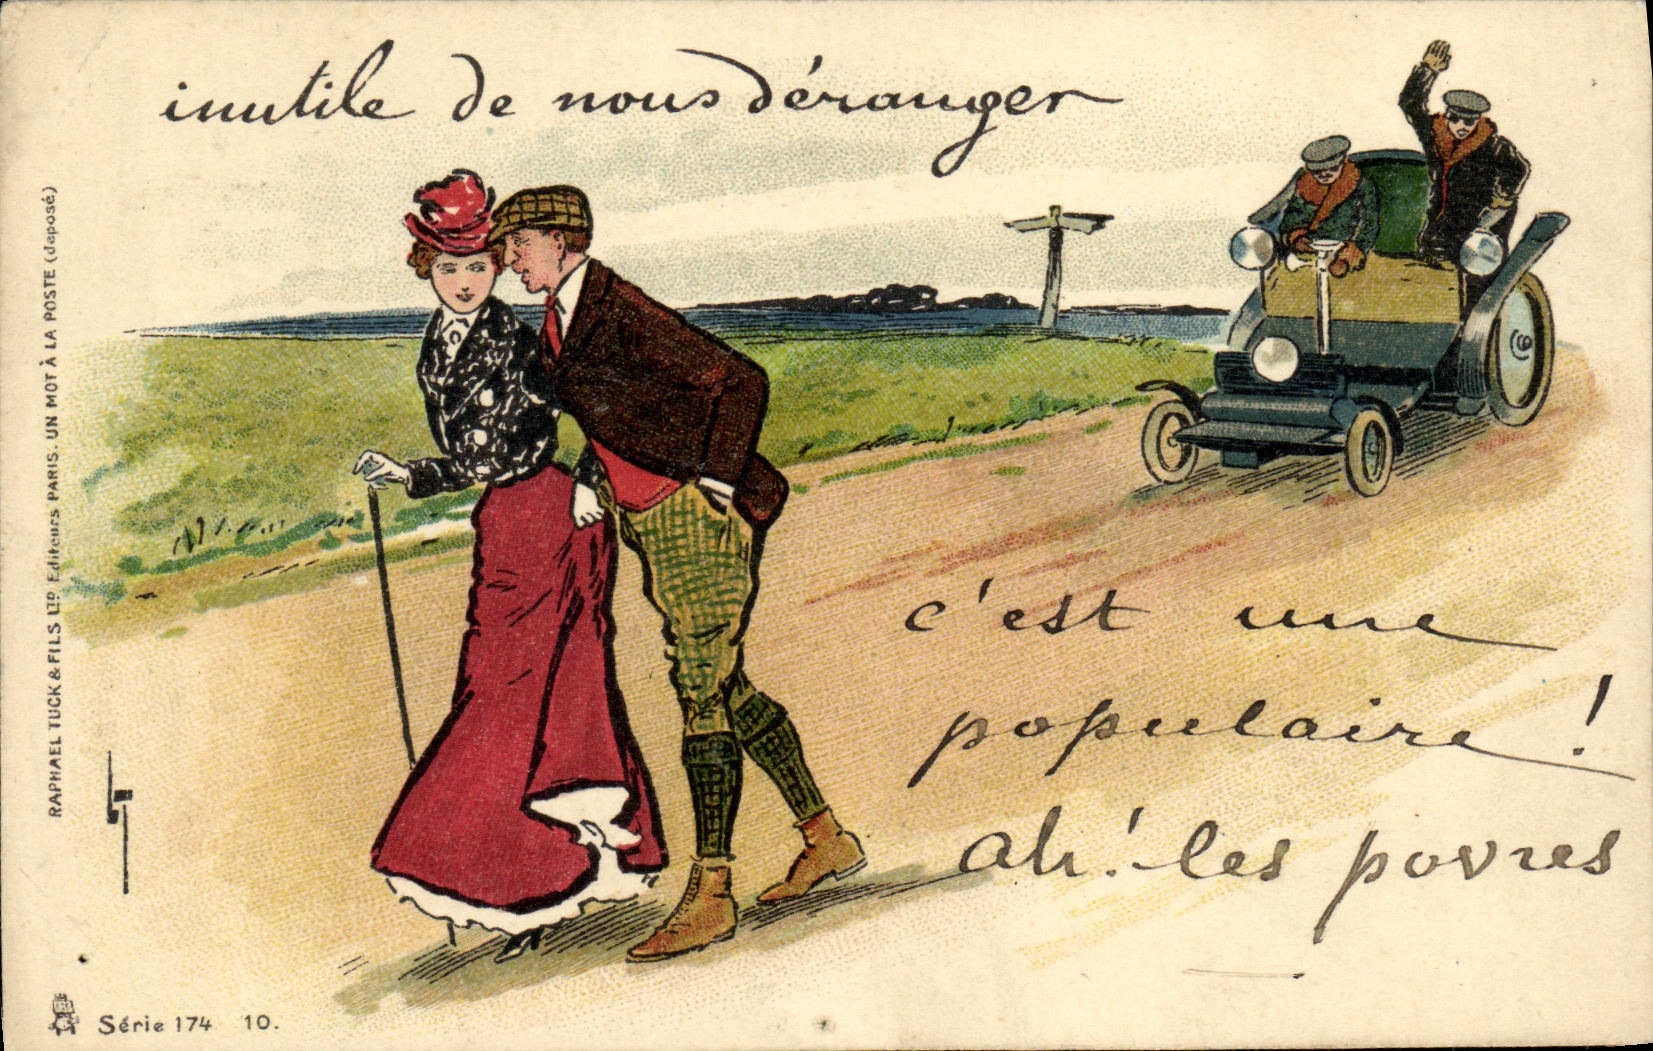 inutile de nous déranger
c'est une
populaire !
ah! les povres
RAPHAEL TUCK & FILS LTD. Editeurs PARIS. UN MOT À LA POSTE (déposé)
Série 174 10.